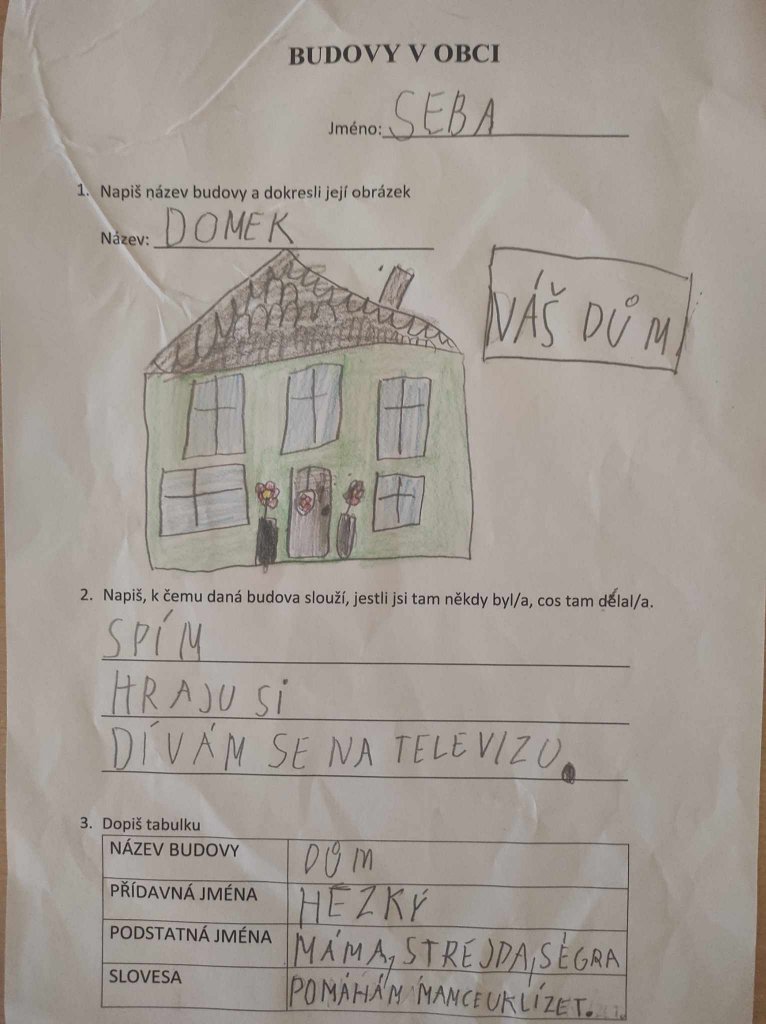 BUDOVY V OBCI
Jméno: SEBA
1. Napiš název budovy a dokresli její obrázek
Název: DOMEK
NÁŠ DŮM
2. Napiš, k čemu daná budova slouží, jestli jsi tam někdy byl/a, cos tam dělal/a.
SPÍM
HRAJU SI
DÍVÁM SE NA TELEVIZU.
3. Dopiš tabulku
NÁZEV BUDOVY DŮM
PŘÍDAVNÁ JMÉNA HEZKÝ
PODSTATNÁ JMÉNA MÁMA, STREJDA, SÉGRA
SLOVESA POMÁHÁM MAMCE UKLÍZET.